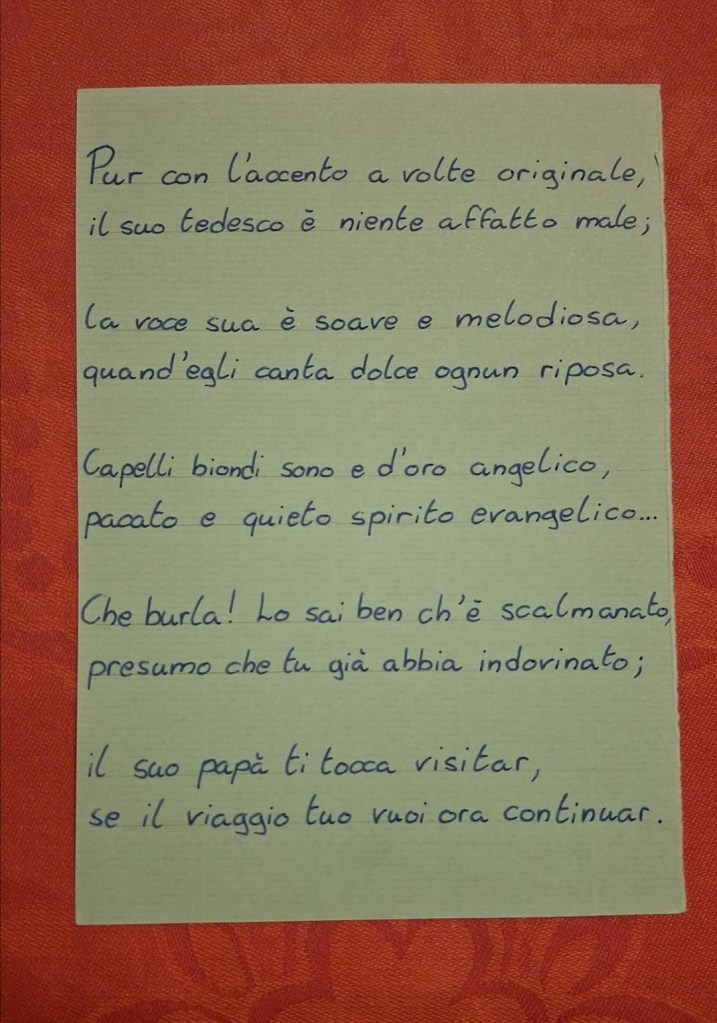 Pur con l'accento a volte originale,
il suo tedesco è niente affatto male;
la voce sua è soave e melodiosa,
quand'egli canta dolce ognun riposa.
Capelli biondi sono e d'oro angelico,
pacato e quieto spirito evangelico...
Che burla! Lo sai ben ch'è scalmanato,
presumo che tu già abbia indovinato;
il suo papà ti tocca visitar,
se il viaggio tuo vuoi ora continuar.